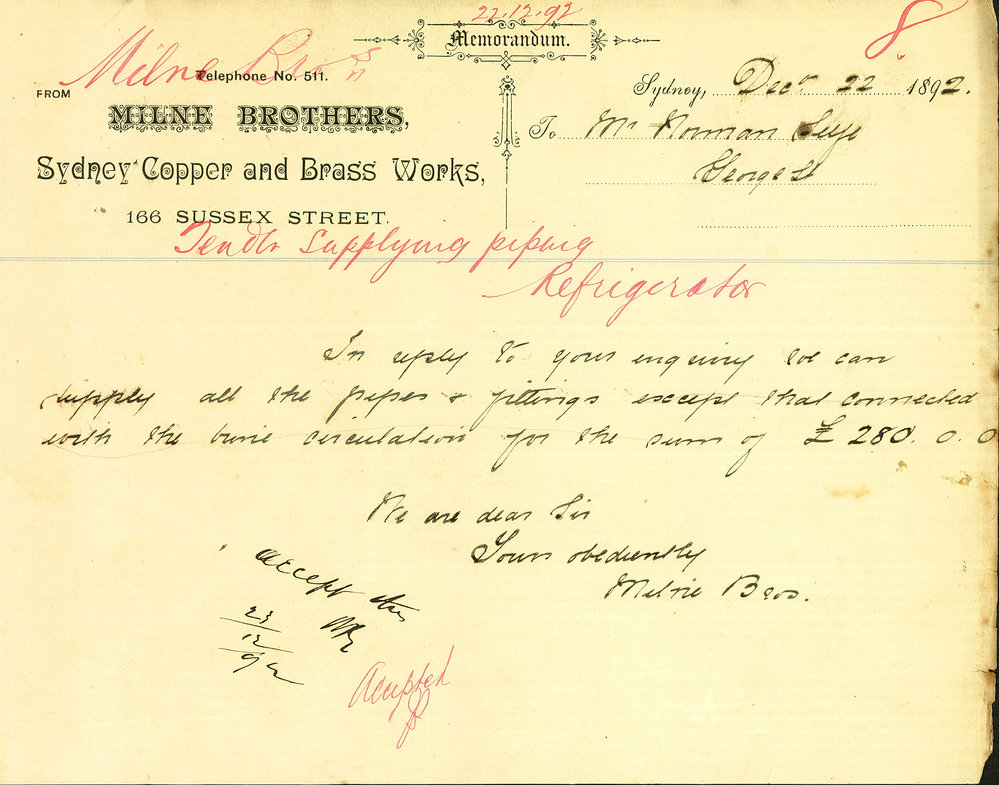 22.12.92
8
Memorandum.
Milne Bros
Telephone No. 511.
FROM
MILNE BROTHERS,
Sydney Copper and Brass Works,
166 SUSSEX STREET.
Sydney, Dect 22 1892.
To Mr Norman Selfe
George St
Tender Supplying piping
Refrigerator
In reply to your enquiry we can
supply all the pipes & fittings except that connected
with the brine circulation for the sum of £280.0.0
We are dear Sir
Yours obediently
Milne Bros.
accept this
23/12/92
Accepted